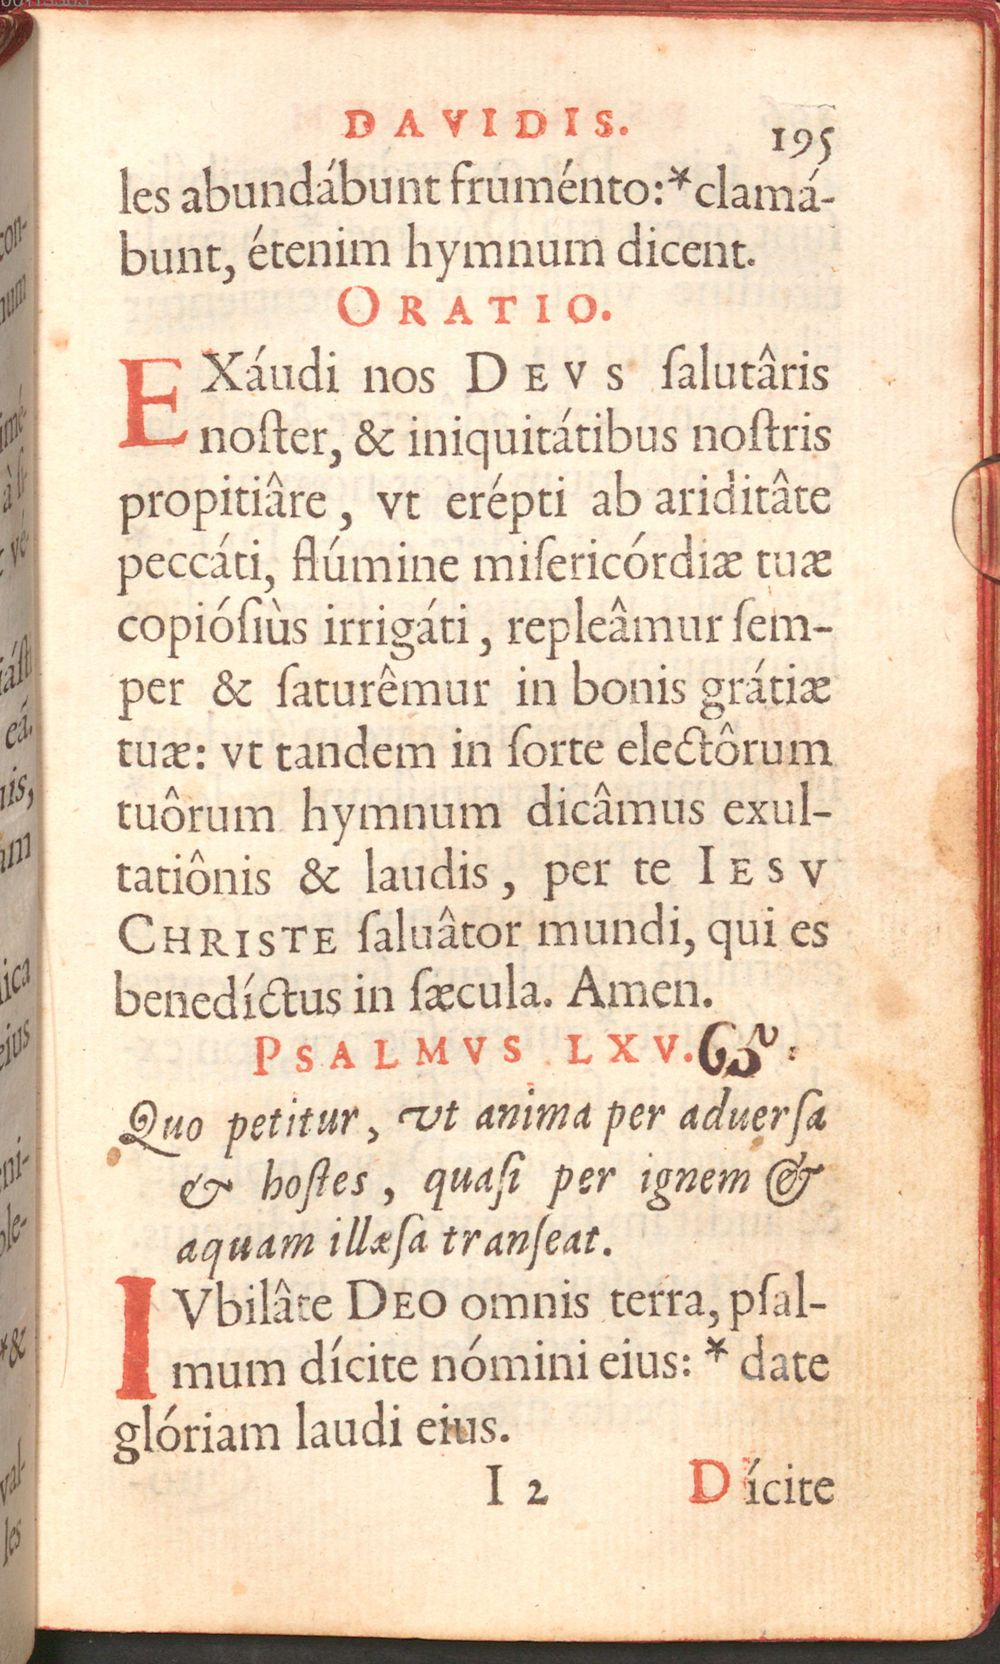 DAVIDIS. 195
les abundábunt fruménto:*clamá-
bunt, étenim hymnum dicent.
ORATIO.
EXáudi nos DEVS ſalutâris
noſter, & iniquitátibus noſtris
propitiâre, vt erépti ab ariditâte
peccáti, flúmine miſericórdiæ tuæ
copióſiùs irrigáti, repleâmur ſem-
per & ſaturêmur in bonis grátiæ
tuæ: vt tandem in ſorte electôrum
tuôrum hymnum dicâmus exul-
tatiônis & laudis, per te IESV
CHRISTE ſaluâtor mundi, qui es
benedíctus in ſæcula. Amen.
PSALMVS LXV.
Quo petitur, vt anima per aduerſa
& hoſtes, quaſi per ignem &
aquam illæſa tranſeat.
IVbilâte DEO omnis terra, pſal-
mum dícite nómini eius: * date
glóriam laudi eius.
I 2 Dícite